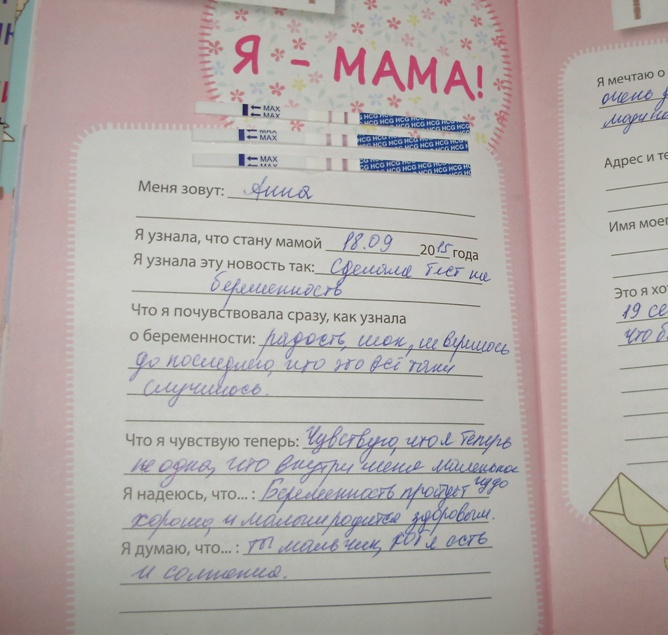 Я - МАМА!
← MAX HCG HCG HCG HCG HCG HCG HCG
← MAX HCG HCG HCG HCG HCG HCG HCG
← MAX HCG HCG HCG HCG HCG HCG HCG
Меня зовут: Анна
Я узнала, что стану мамой 18.09 2015 года
Я узнала эту новость так: Сделала тест на
беременность
Что я почувствовала сразу, как узнала
о беременности: радость, шок, не верилось
до последнего, что это всё таки
случилось.
Что я чувствую теперь: Чувствую, что я теперь
не одна, что внутри меня маленькое
чудо
Я надеюсь, что... : Беременность пройдет
хорошо, и малыш родится здоровым.
Я думаю, что... : ты мальчик, хотя есть
и сомнения.
Я мечтаю о
очень
Адрес и те
Имя моег
Это я хот
19 се
что б